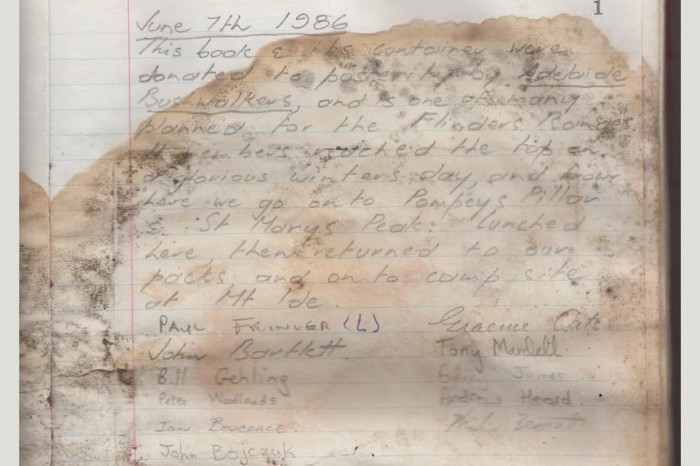 1
June 7th 1986
This book & its container were
donated to posterity by Adelaide
Bushwalkers, and is one of many
planned for the Flinders Ranges
11 members reached the top on
a glorious winters day, and from
here we go on to Pompeys Pillar
& St Marys Peak. Lunched
here, then returned to our
packs and on to camp site
at Mt
PAUL (L) Graeme Oats
John Bartlett Tony Mardell
Bill Gehling James
Peter Woodlands Andrew Heard
Ian Phil
John Bojczuk